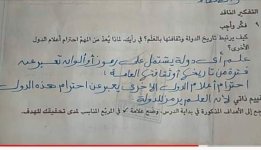 التفكير الناقد
٩ فكّر وأجب
كيف يرتبط تاريخ الدولة وثقافتها بالعَلَم؟ في رأيك، لماذا يُعدّ من المهمّ احترام أعلام الدول
الأخرى؟
علم أي دولة يشتمل على رموز أو ألوان تعبر عن
فترة من تاريخي أو ثقافتي العامة
احترام أعلام الدول الأخرى يعبر عن احترام هذه الدول
تقييم ذاتي لأن العلم يرمز للدولة
إلى الأهداف المذكورة في بداية الدرس، وضع علامة ✓ في المربع المناسب لمدى تحقيقك للهدف.